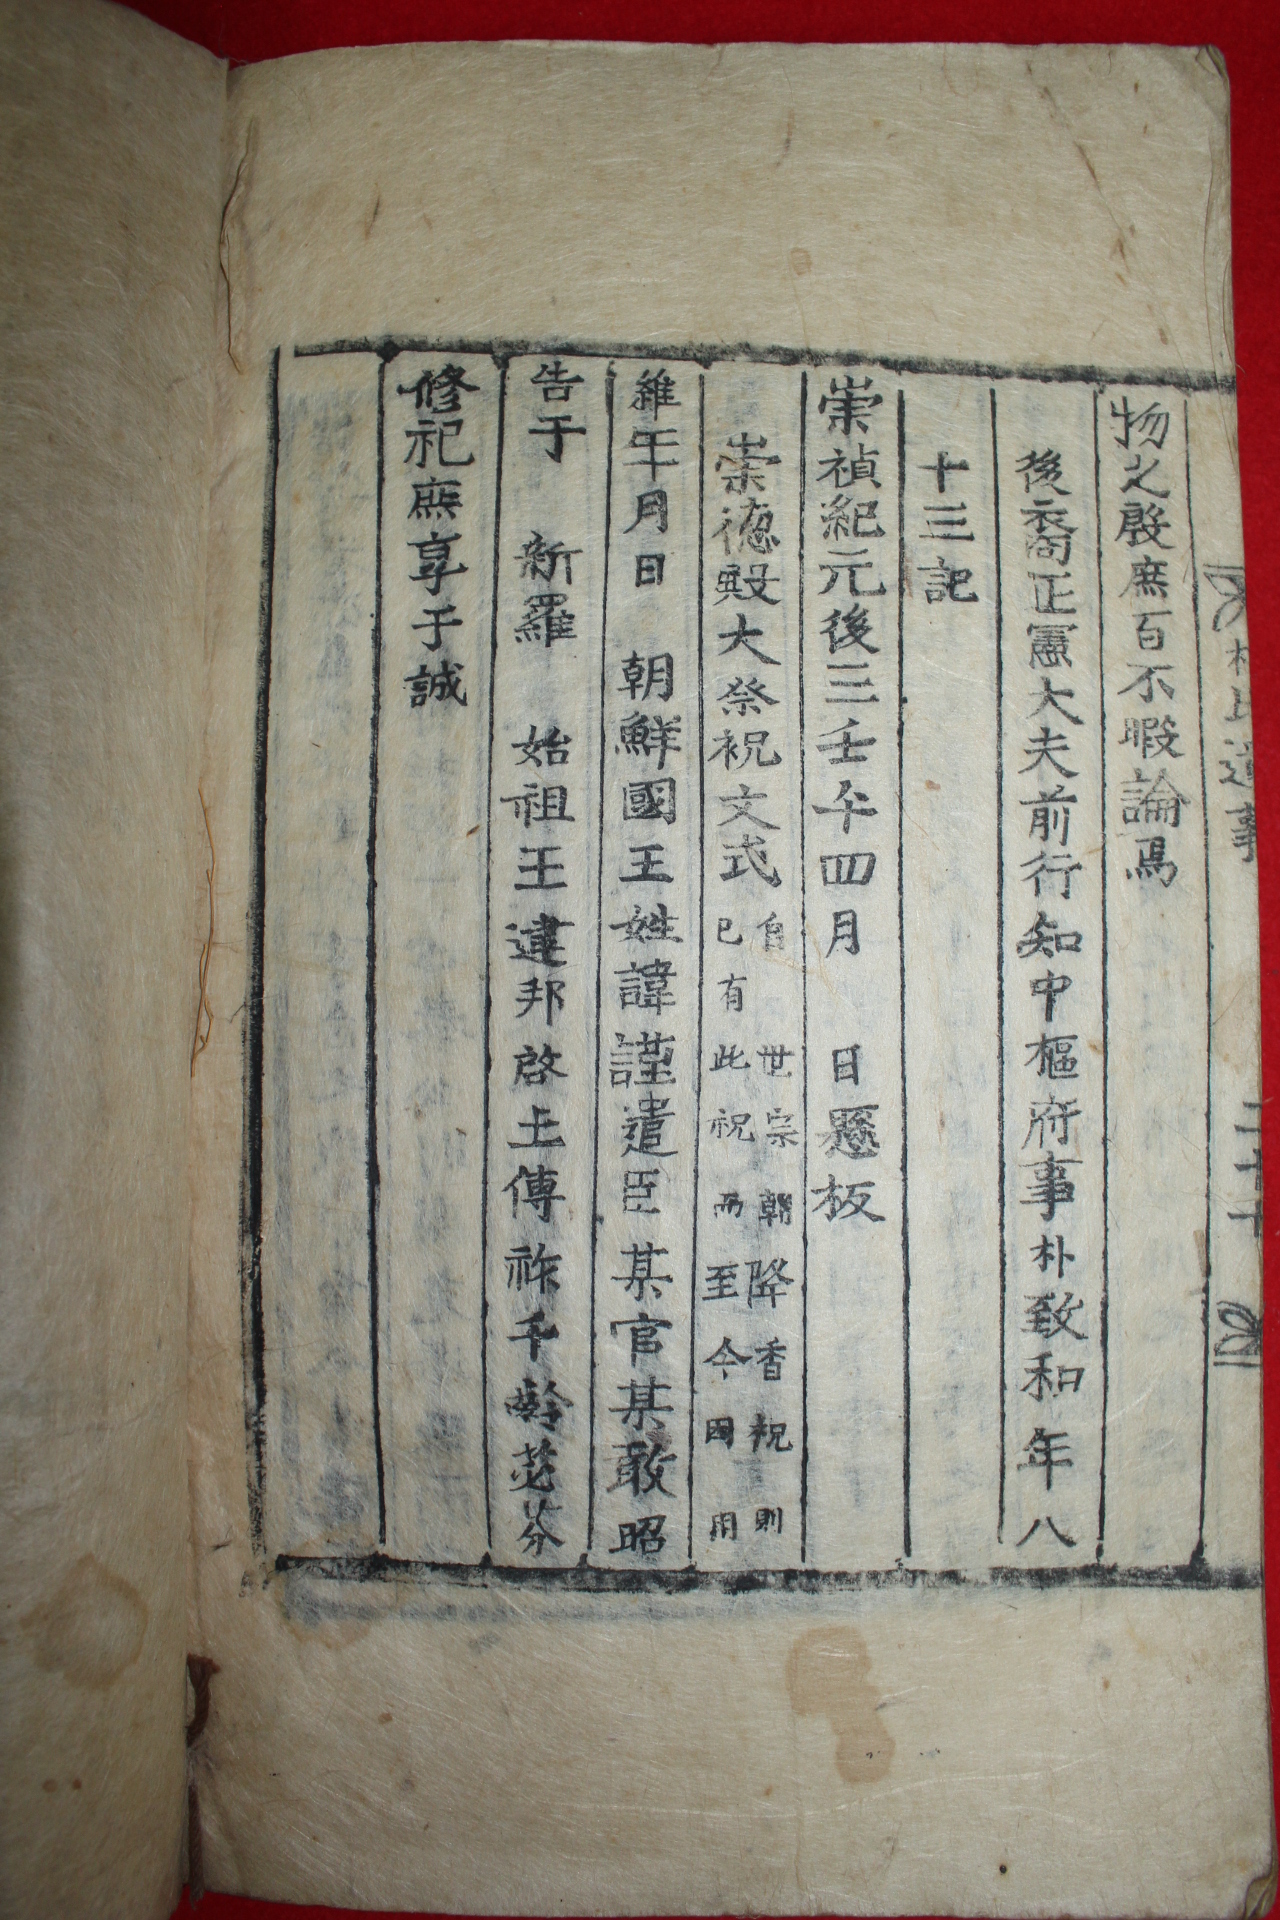 朴氏遺事 二十七
物之殷庶百不暇論焉
後裔正憲大夫前行知中樞府事朴致和年八
十三記
崇禎紀元後三壬午四月 日懸板
崇德殿大祭祝文式 自 世宗朝降香祝則
已有此祝而至今因用
維年月日 朝鮮國王姓諱謹遣臣某官某敢昭
告于 新羅 始祖王建邦啓土傳祚千齡苾芬
修祀庶享于誠